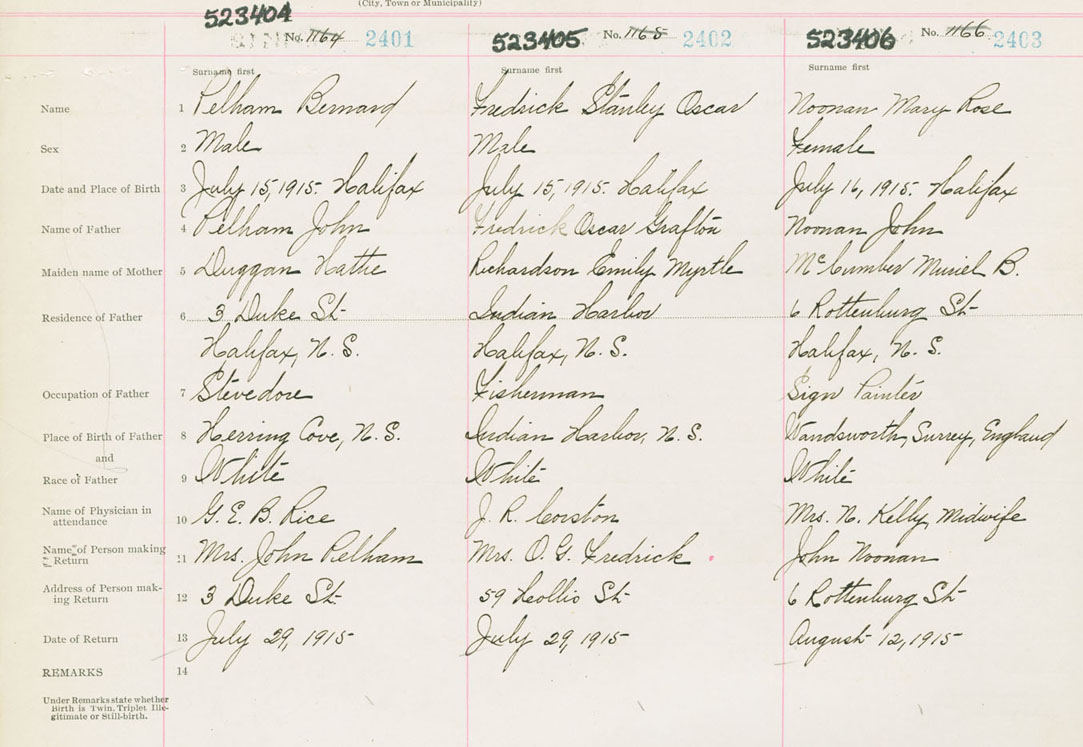 (City, Town or Municipality)
523404 No. 1164 2401 523405 No. 1165 2402 523406 No. 1166 2403
Surname first Surname first Surname first
Name 1 Pelham Bernard Fredrick Stanley Oscar Noonan Mary Rose
Sex 2 Male Male Female
Date and Place of Birth 3 July 15, 1915. Halifax July 15, 1915. Halifax July 16, 1915. Halifax
Name of Father 4 Pelham John Fredrick Oscar Grafton Noonan John
Maiden name of Mother 5 Duggan Hattie Richardson Emily Myrtle McCumber Muriel B.
Residence of Father 6 3 Duke St. Indian Harbor 6 Rottenburg St.
Halifax, N.S. Halifax, N.S. Halifax, N.S.
Occupation of Father 7 Stevedore Fisherman Sign Painter
Place of Birth of Father 8 Herring Cove, N.S. Indian Harbor, N.S. Wandsworth, Surrey, England
and
Race of Father 9 White White White
Name of Physician in attendance 10 G. E. B. Rice J. R. Corston Mrs. N. Kelly, Midwife
Name of Person making Return 11 Mrs. John Pelham Mrs. O. G. Fredrick John Noonan
Address of Person making Return 12 3 Duke St. 59 St. 6 Rottenburg St.
Date of Return 13 July 29, 1915 July 29, 1915 August 12, 1915
REMARKS 14
Under Remarks state whether
Birth is Twin, Triplet Ille-
gitimate or Still-birth.